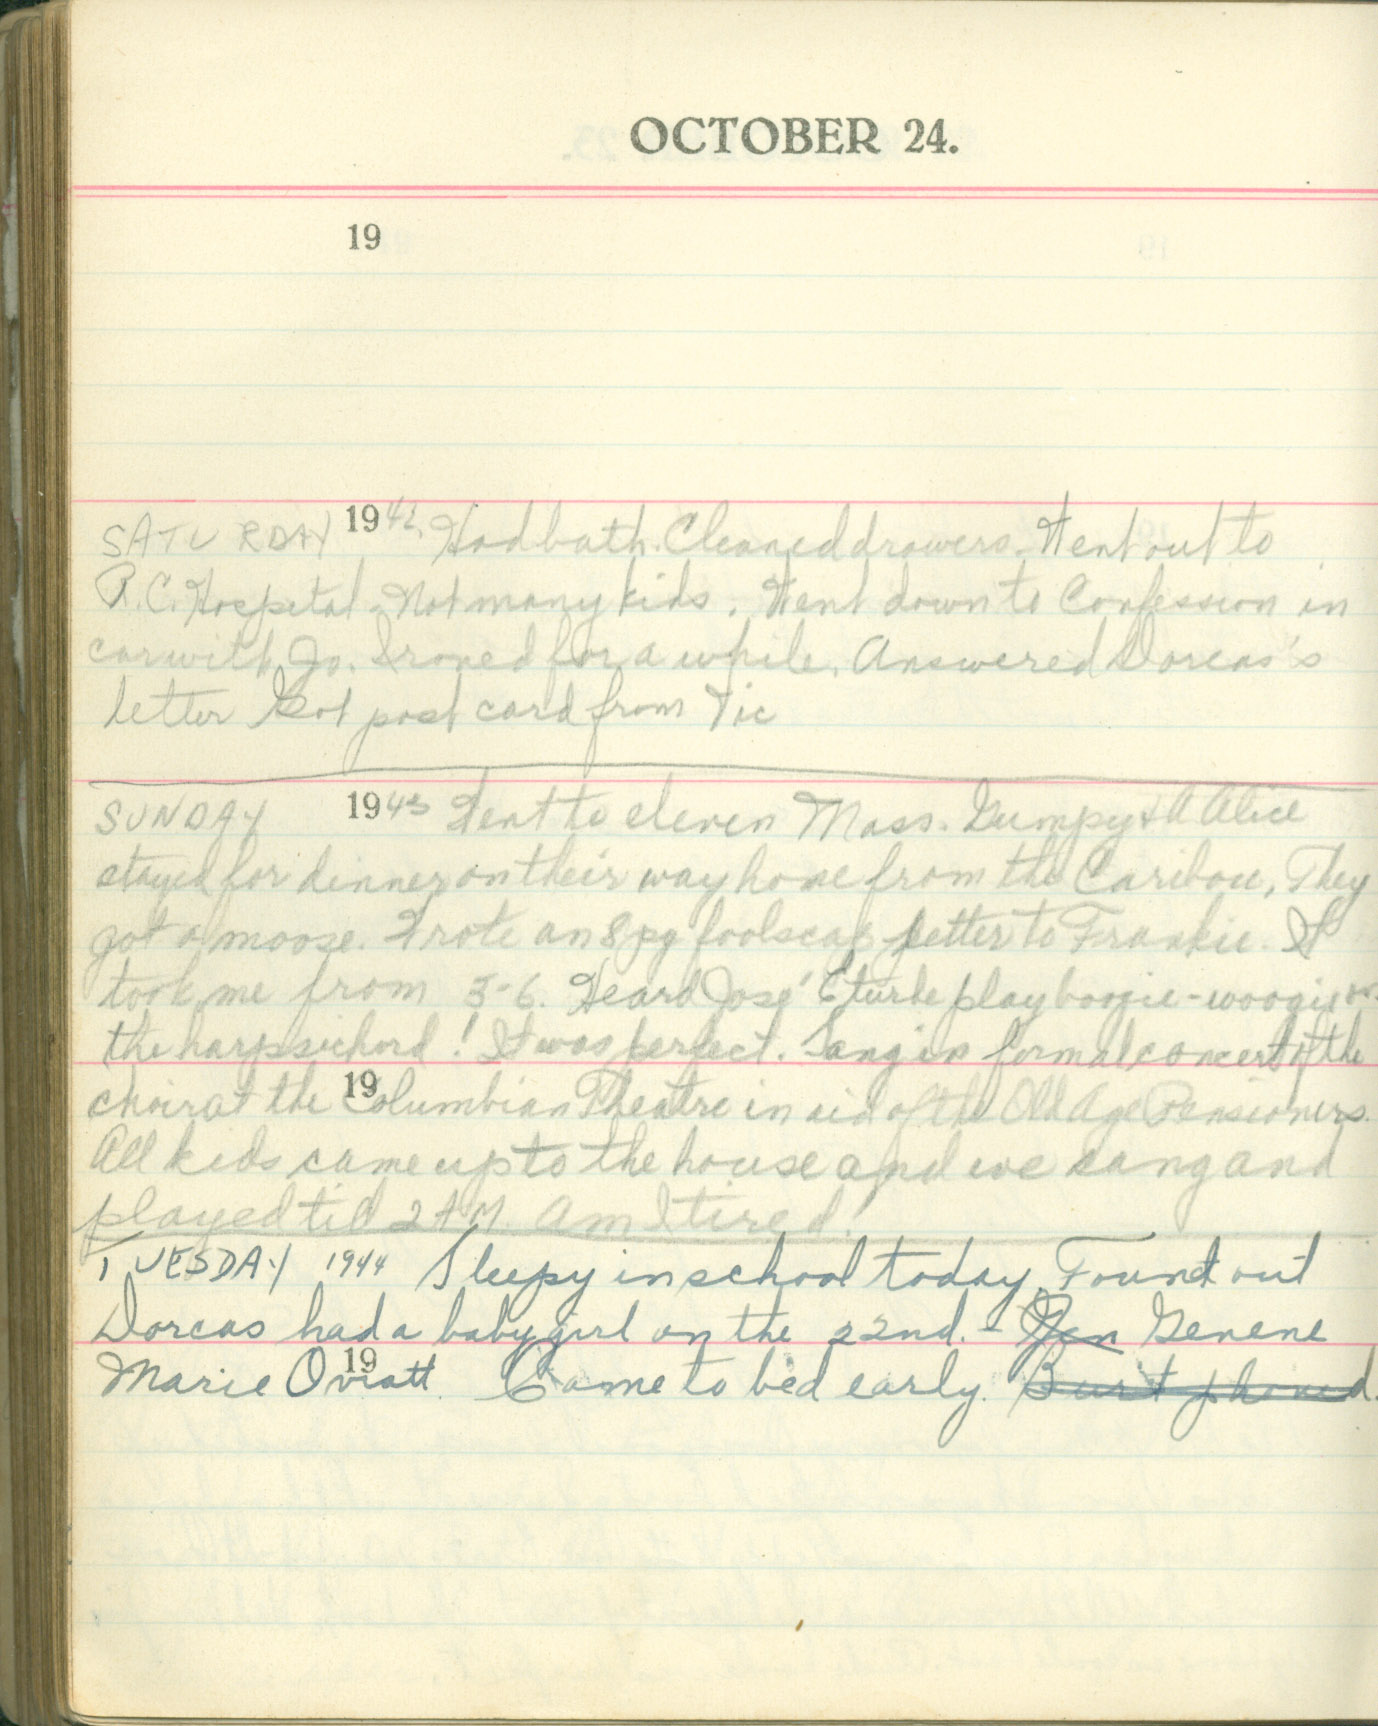 OCTOBER 24.
19
SATURDAY 1942. Had bath. Cleaned drawers. Went out to
R.C. Hospital. Not many kids. Went down to Confession in
car with Jo. Ironed for a while. Answered Dorcas's
letter Got post card from Vic
SUNDAY 1943 Went to eleven Mass. Gumpy & A Alice
stayed for dinner on their way home from the Caribou, They
got a moose. Wrote an 8 pg foolscap letter to Frankie. It
took me from 3-6. Heard José Eturbe play boogie-woogie on
the harpsichord! It was perfect. Sang in formal concert of the
19
choir at the Columbian Theatre in aid of the Old Age Pensioners.
All kids came up to the house and we sang and
played till 2 A.M. Am I tired!
TUESDAY 1944 Sleepy in school today. Found out
Dorcas had a baby girl on the 22nd. - Jen Genene
19
Marie Oviatt. Came to bed early. Burt phoned.